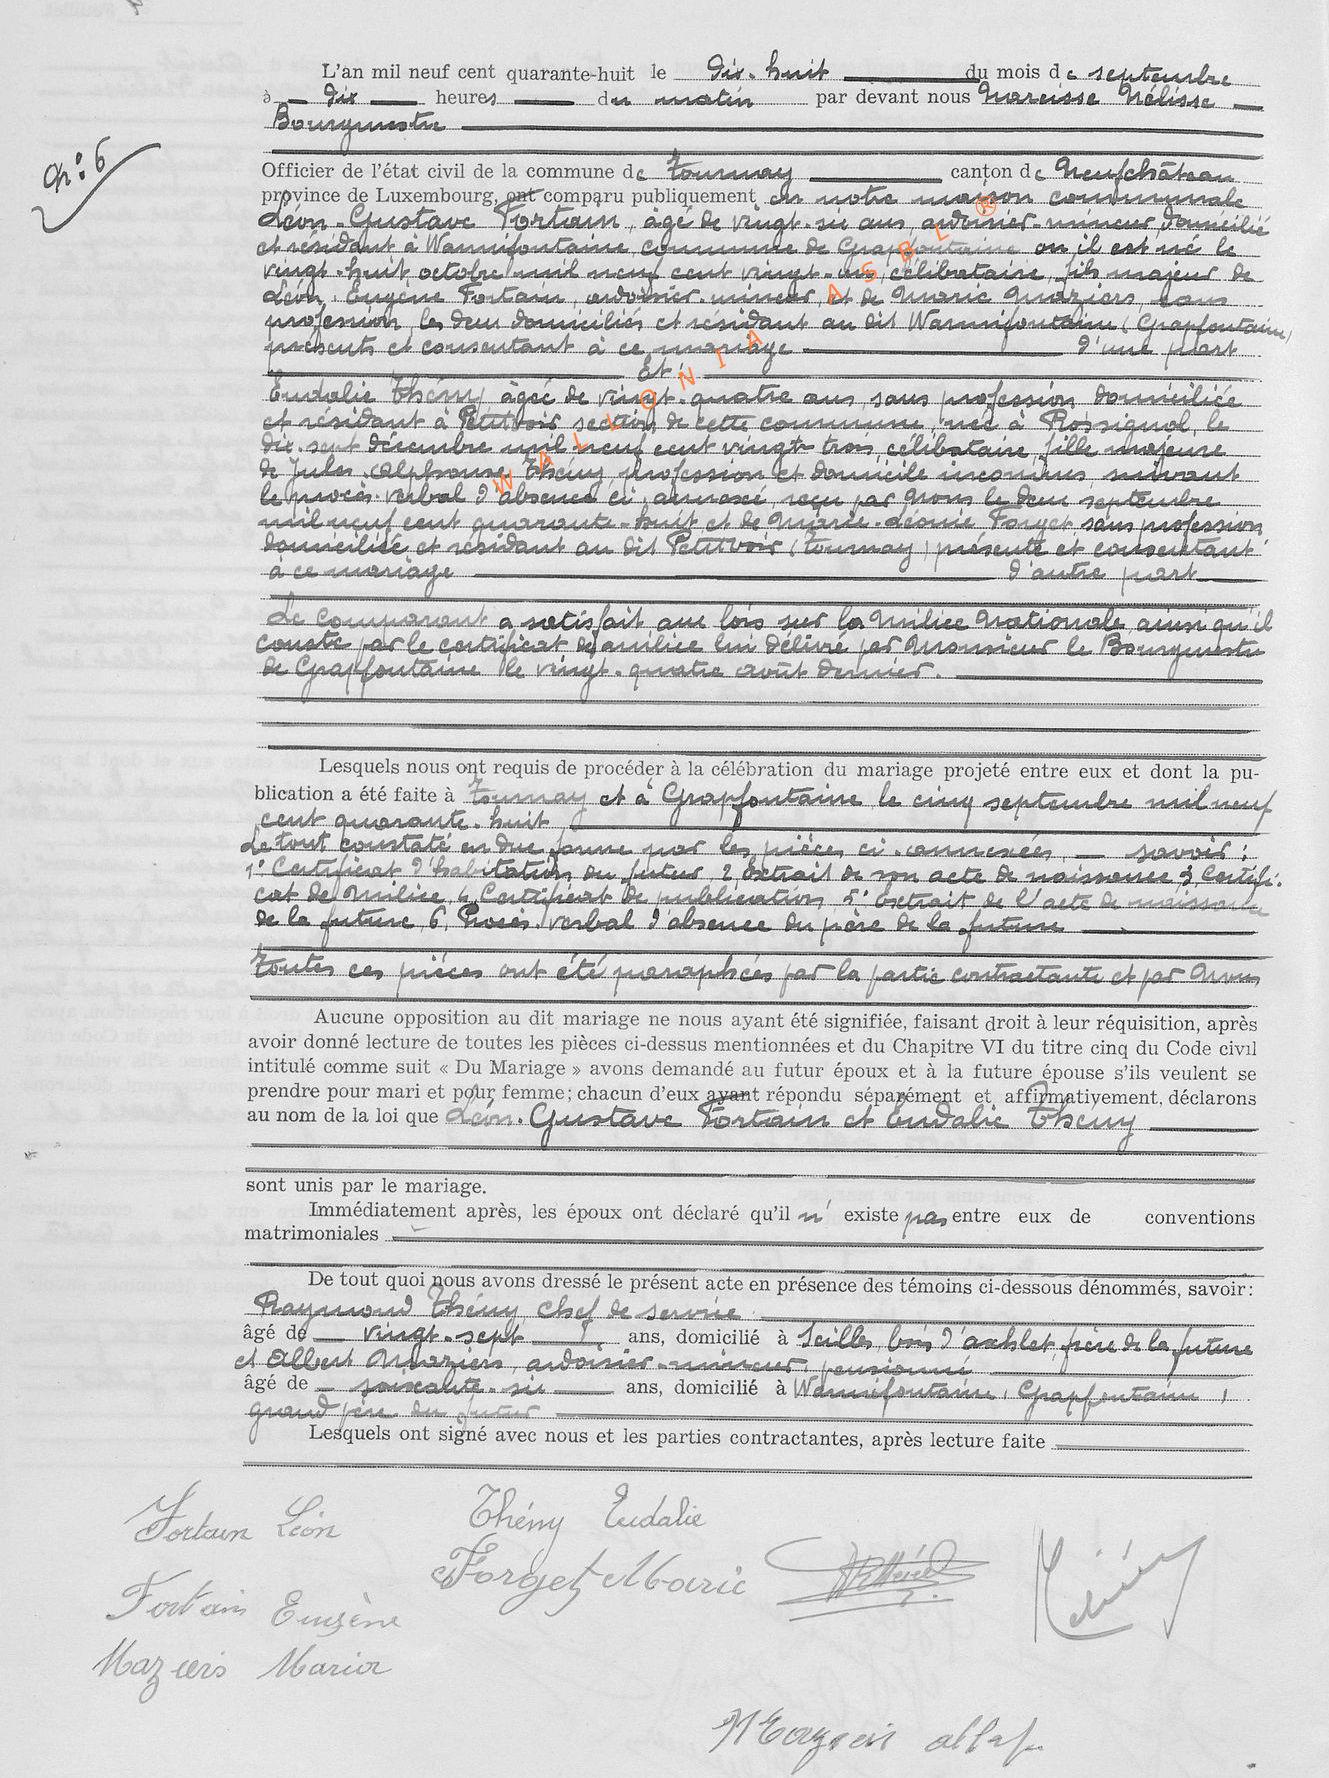 L'an mil neuf cent quarante-huit le dix-huit du mois de septembre
à dix heures du matin par devant nous Narcisse Nélisse
Bourgmestre
N°: 6
Officier de l'état civil de la commune de Tournay canton de Neufchâteau
province de Luxembourg, ont comparu publiquement en notre maison communale
Léon-Gustave Fortain, âgé de vingt-six ans, ardoisier-mineur, domicilié
et résidant à Warmifontaine, commune de Grapfontaine où il est né le
vingt-huit octobre mil neuf cent vingt-un, célibataire, fils majeur de
Léon, Eugène Fortain, ardoisier-mineur, et de Maria Maziers, sans
profession, les deux domiciliés et résidant au dit Warmifontaine (Grapfontaine)
présents et consentant à ce mariage d'une part
Et:
Eudalie Thény, âgée de vingt-quatre ans, sans profession domiciliée
et résidant à Petitvoir section de cette commune, née à Rossignol, le
dix-sept décembre mil neuf cent vingt-trois, célibataire, fille majeure
de Jules, Alphonse Thény, profession et domicile inconnus, suivant
le procès-verbal d'absence ci-annexé reçu par Nous le deux septembre
mil neuf cent quarante-huit et de Marie-Léonie Forget sans profession,
domiciliée et résidant au dit Petitvoir (Tournay) présente et consentant
à ce mariage d'autre part
Le comparant a satisfait aux lois sur la Milice Nationale, ainsi qu'il
conste par le certificat de milice lui délivré par Monsieur le Bourgmestre
de Grapfontaine le vingt-quatre août dernier.
Lesquels nous ont requis de procéder à la célébration du mariage projeté entre eux et dont la pu-
blication a été faite à Tournay et à Grapfontaine le cinq septembre mil neuf
cent quarante-huit
Le tout constaté en due forme par les pièces ci-annexées, — savoir:
1° Certificat d'habitation du futur 2, Extrait de son acte de naissance 3, Certifi-
cat de Milice, 4, Certificat de publication, 5° Extrait de l'acte de naissance
de la future, 6, Procès-verbal d'absence du père de la future
Toutes ces pièces ont été paraphées par la partie contractante et par Nous
Aucune opposition au dit mariage ne nous ayant été signifiée, faisant droit à leur réquisition, après
avoir donné lecture de toutes les pièces ci-dessus mentionnées et du Chapitre VI du titre cinq du Code civil
intitulé comme suit « Du Mariage » avons demandé au futur époux et à la future épouse s'ils veulent se
prendre pour mari et pour femme; chacun d'eux ayant répondu séparément et affirmativement, déclarons
au nom de la loi que Léon-Gustave Fortain et Eudalie Thény
sont unis par le mariage.
Immédiatement après, les époux ont déclaré qu'il n'existe pas entre eux de conventions
matrimoniales
De tout quoi nous avons dressé le présent acte en présence des témoins ci-dessous dénommés, savoir:
Raymond Thény, chef de service
âgé de vingt-sept ans, domicilié à Seilles, bois d'axhlet, frère de la future
et Albert Maziers, ardoisier-mineur, pensionné
âgé de soixante-six ans, domicilié à Warmifontaine, Grapfontaine,
grand père du futur
Lesquels ont signé avec nous et les parties contractantes, après lecture faite
Fortain Léon
Thény Eudalie
Forget Marie
Fortain Eugène
Maziers Maria
WALLONIA ASBL ®